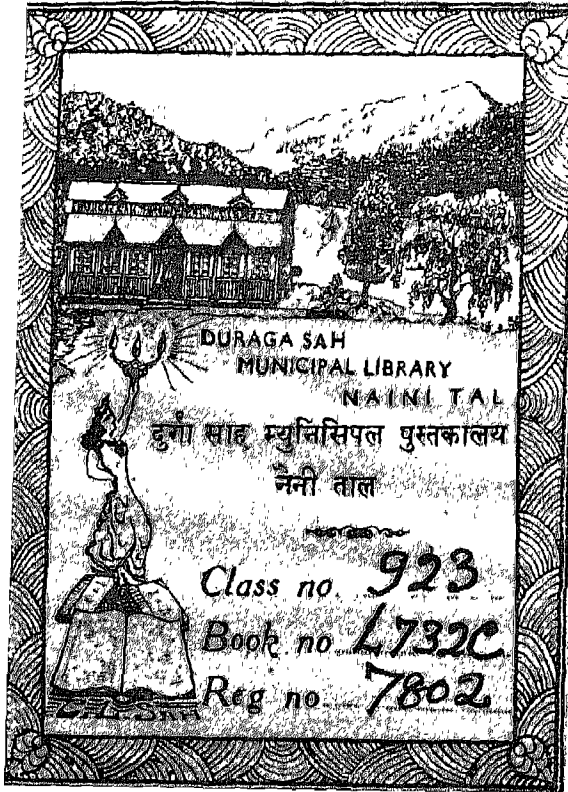 DURAGA SAH
MUNICIPAL LIBRARY
NAINI TAL
दुर्गा साह म्युनिसिपल पुस्तकालय
नैनी ताल
Class no. 923
Book no L732C
Reg no. 7802